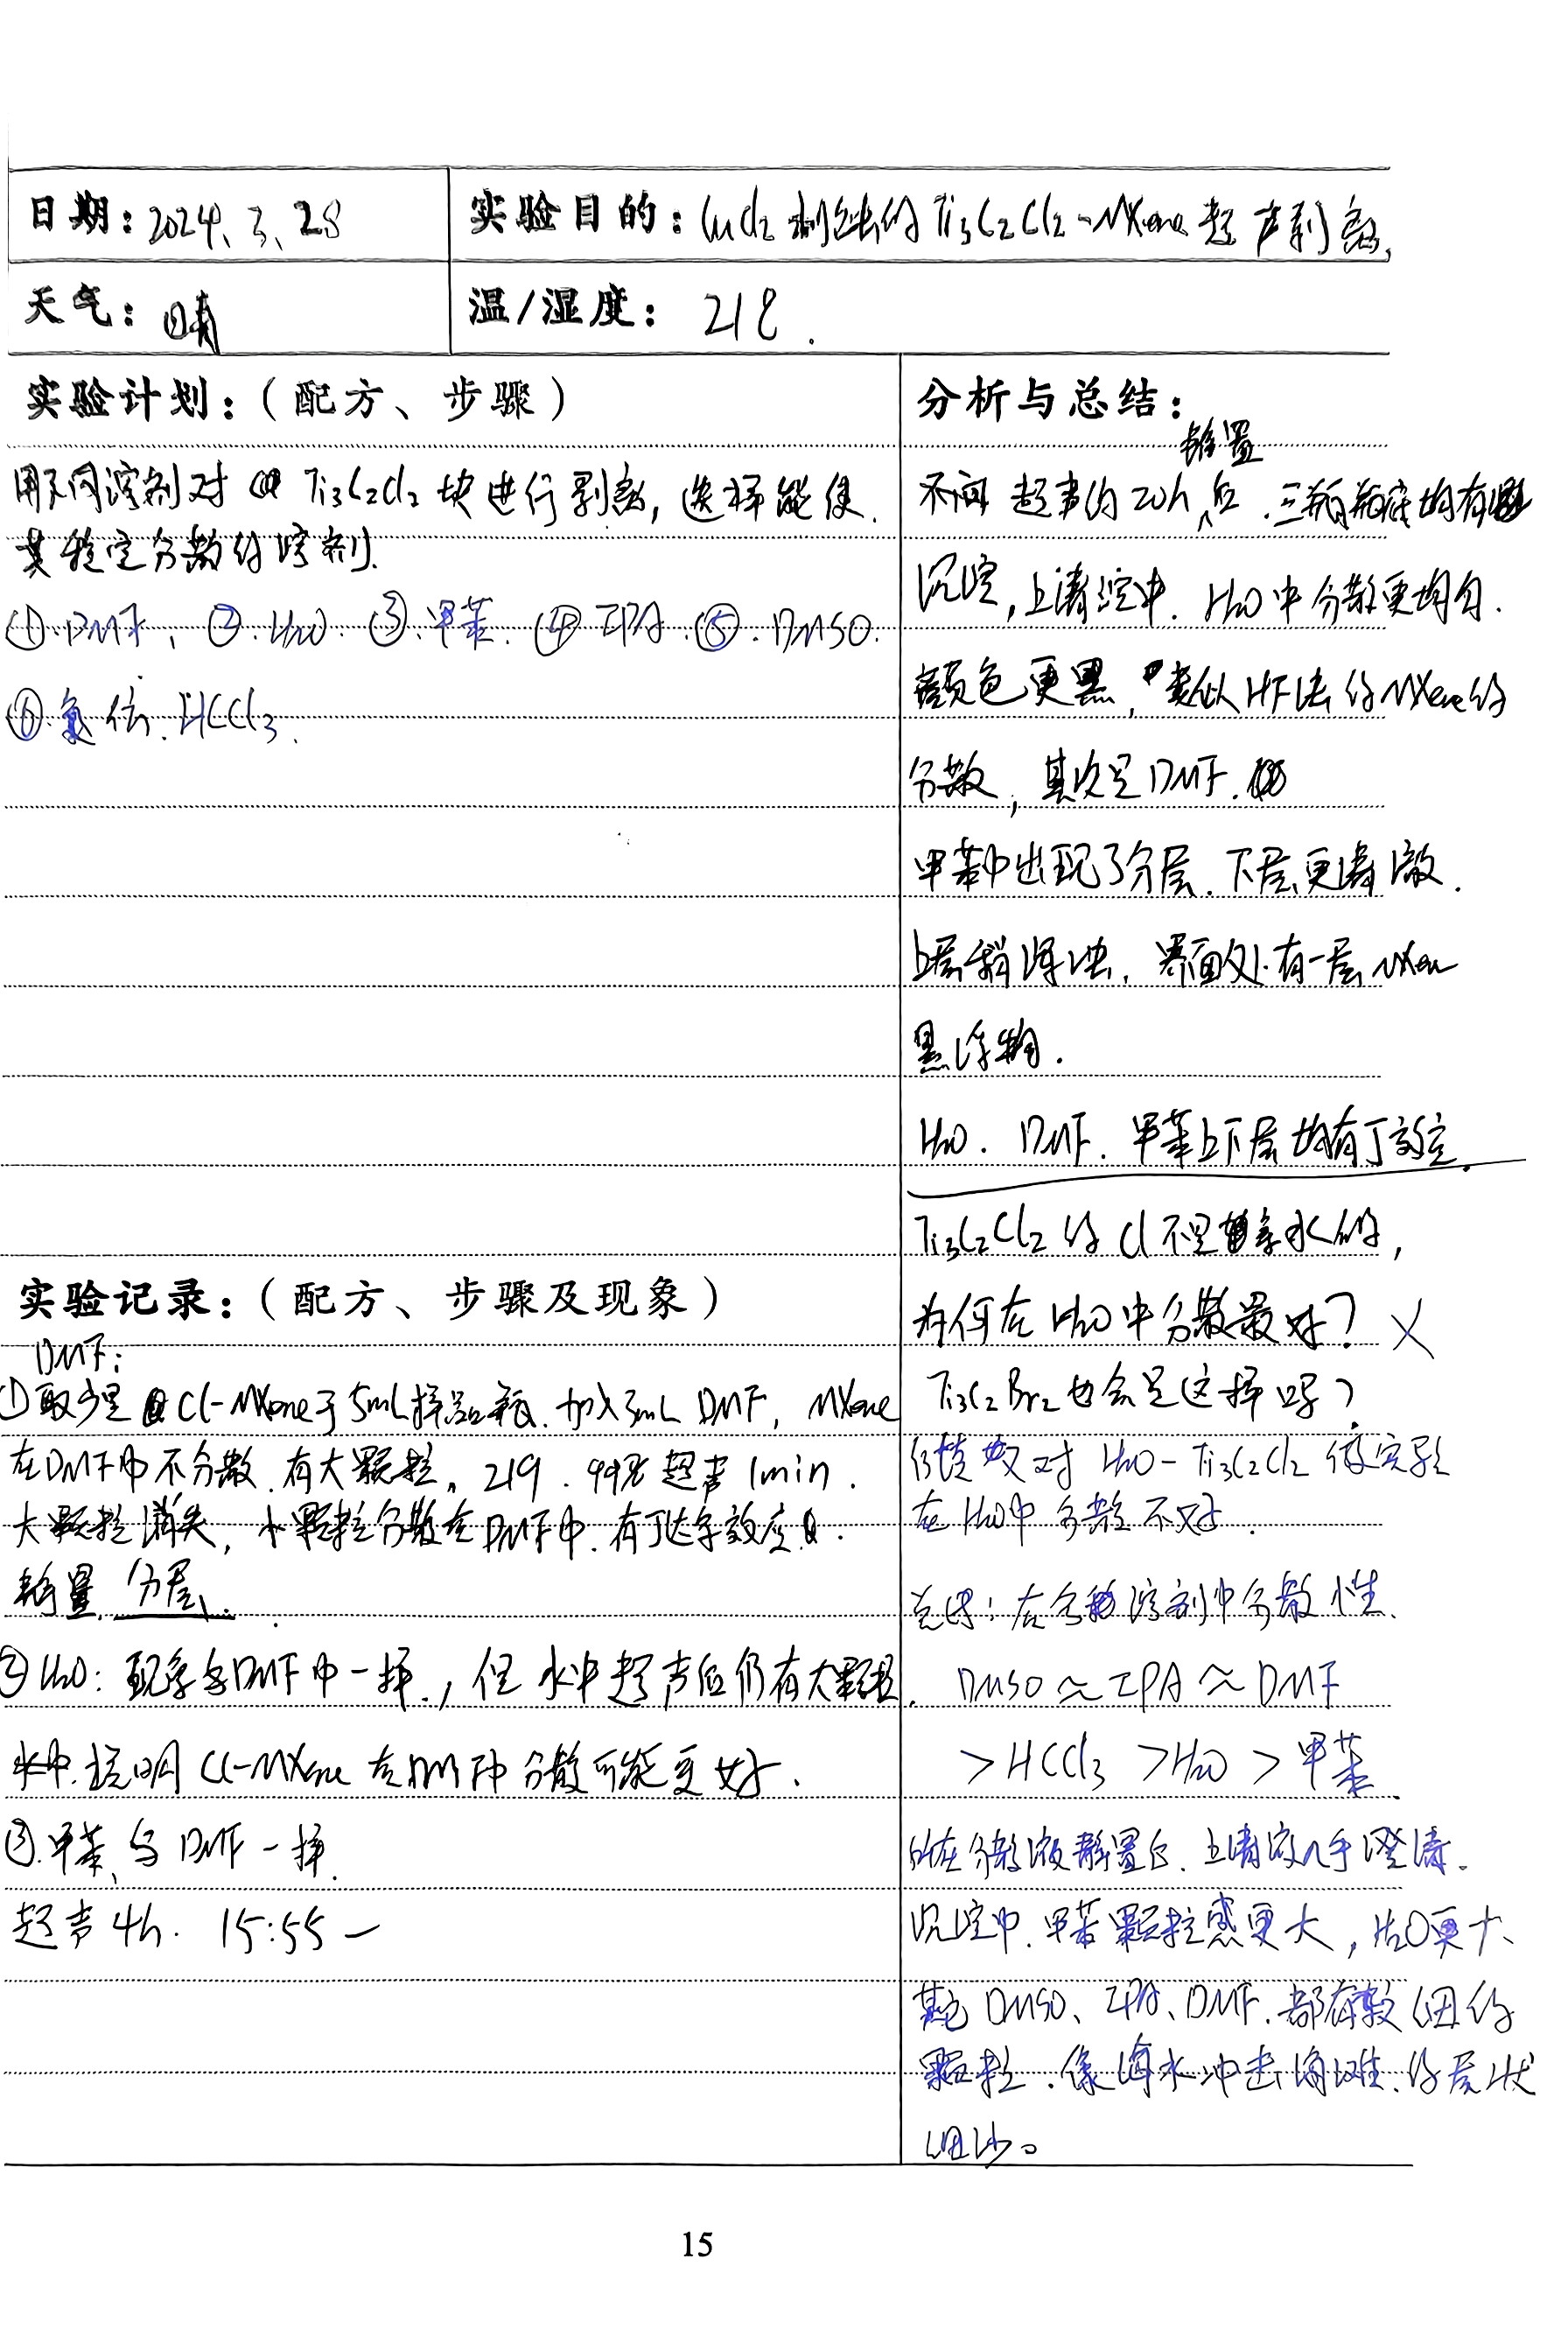 日期：2024.3.28
实验目的：CuCl2刻蚀的Ti3C2Cl2-MXene超声剥离.
天气：晴
温/湿度：21℃.
实验计划：（配方、步骤）
用不同溶剂对 Ti3C2Cl2 块进行剥离，选择能使
其稳定分散的溶剂.
①.DMF、②.H2O.③.甲苯.④IPA.⑤.DMSO.
⑥.氯仿.HCCl3.
实验记录：（配方、步骤及现象）
DMF:
①取少量 Cl-MXene于5mL样品瓶.加入3mL DMF, MXene
在DMF中不分散.有大颗粒。219.99% 超声1min.
大颗粒消失，小颗粒分散在DMF中.有丁达尔效应.
静置.分层.
②H2O：现象与DMF中一样.，但水中超声后仍有大颗粒.
水中.说明Cl-MXene在DMF中分散可能更好.
③.甲苯、与DMF一样.
超声4h. 15:55—
分析与总结：
静置
不间 超声约20h后.三瓶瓶底均有
沉淀，上清液中.H2O中分散更均匀.
颜色更黑，类似HF法的MXene的
分散，其次是DMF.
甲苯中出现了分层.下层更清澈.
上层稍浑浊，界面处有一层MXene
黑浮物.
H2O. DMF. 甲苯上下层均有丁效应.
Ti3C2Cl2的Cl不是亲水的，
为何在H2O中分散最好？ ×
Ti3C2Br2也会是这样吗？
对H2O-Ti3C2Cl2做实验
在H2O中分散不好.
总结：在各种溶剂中分散性.
DMSO≈IPA≈DMF
>HCCl3>H2O>甲苯
所在分散液静置后.上清液几乎澄清.
沉淀中.甲苯颗粒感更大，H2O更大、
其它DMSO、IPA、DMF.都有较细的
颗粒.像海水冲击海滩.的层状
细沙。
15